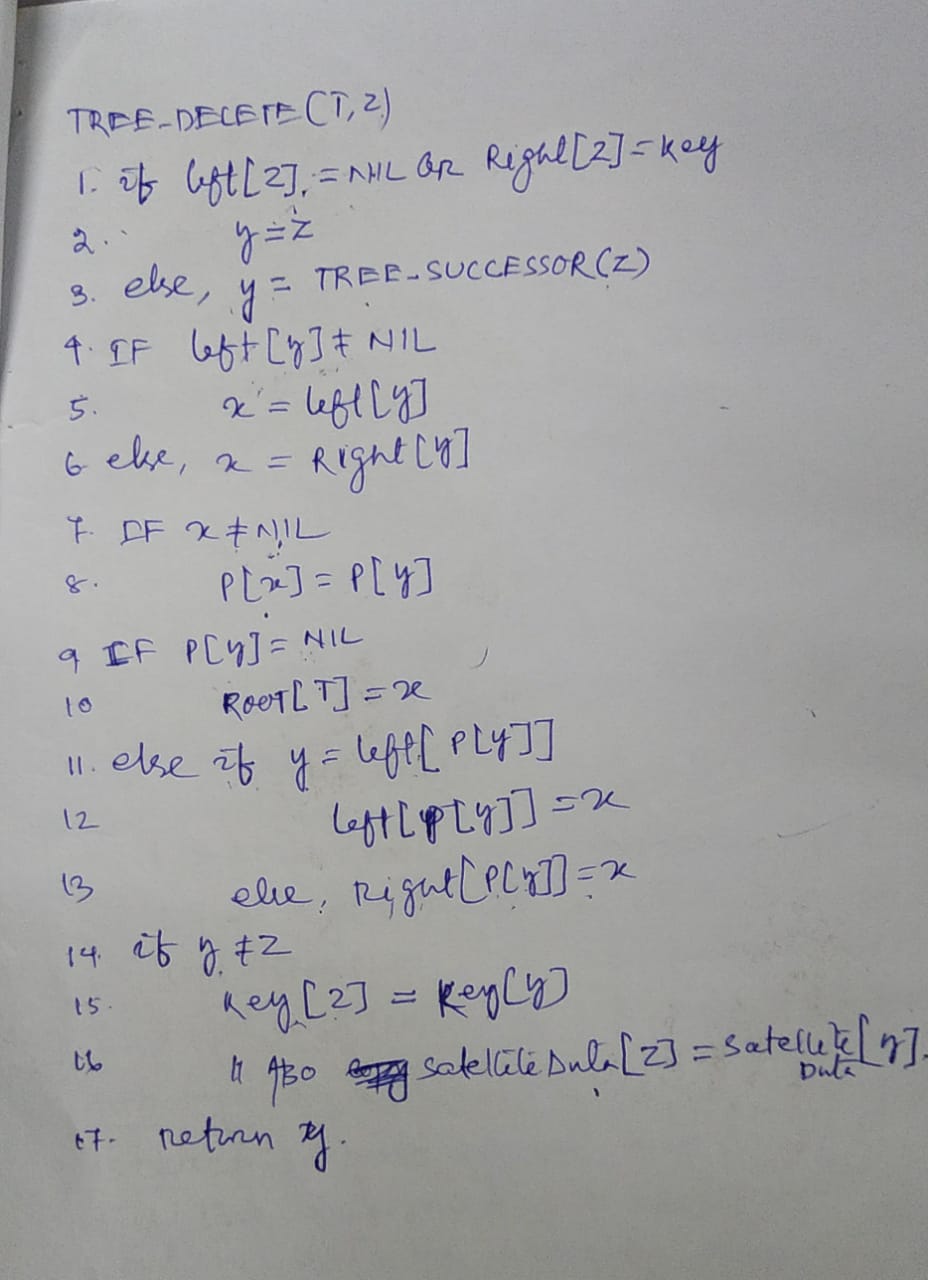 TREE-DELETE (T, Z)
1. if left[Z] = NIL OR Right[Z] = Key
2. y = z
3. else, y = TREE-SUCCESSOR(Z)
4. IF left [y] ≠ NIL
5. x = left[y]
6 else, x = Right [y]
7. IF x ≠ NIL
8. P[x] = P[y]
9 IF P[y] = NIL
10 ROOT[T] = x
11. else if y = left[P[y]]
12 left[P[y]] = x
13 else, Right[P[y]] = x
14. if y ≠ Z
15. Key[Z] = Key[y]
16 Also satellite Data[Z] = Satellite Data[y].
17. return y.